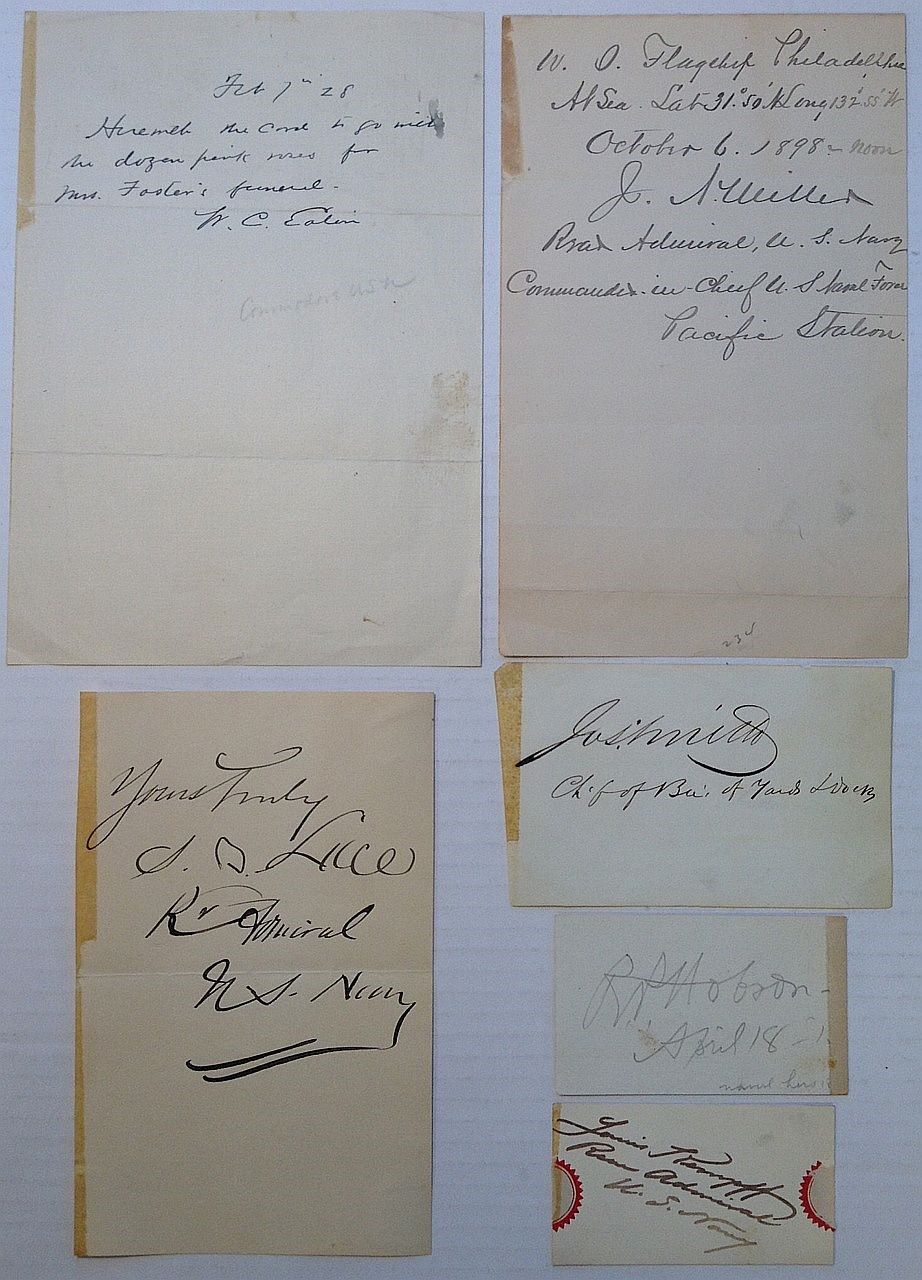 Feb 7th 28
Herewith the card to go with
the dozen pink roses for
Mrs. Foster's funeral.
W. C. Eaton
Commodore USN
Flagship Philadelphia
At Sea. Lat 31° 50' N Long 132° 55' W
October 6. 1898 - noon
J. N. Miller
Rear Admiral, U. S. Navy
Commander-in-Chief U. S Naval Force
Pacific Station.
23d
Yours Truly
S. B. Luce
Rr Admiral
U S. Navy
Jos. Smith
Ch'f of Bu. of Yards & Docks
R. P. Hobson-
April 18
naval hero
Louis Kempff
Rear Admiral
U. S. Navy